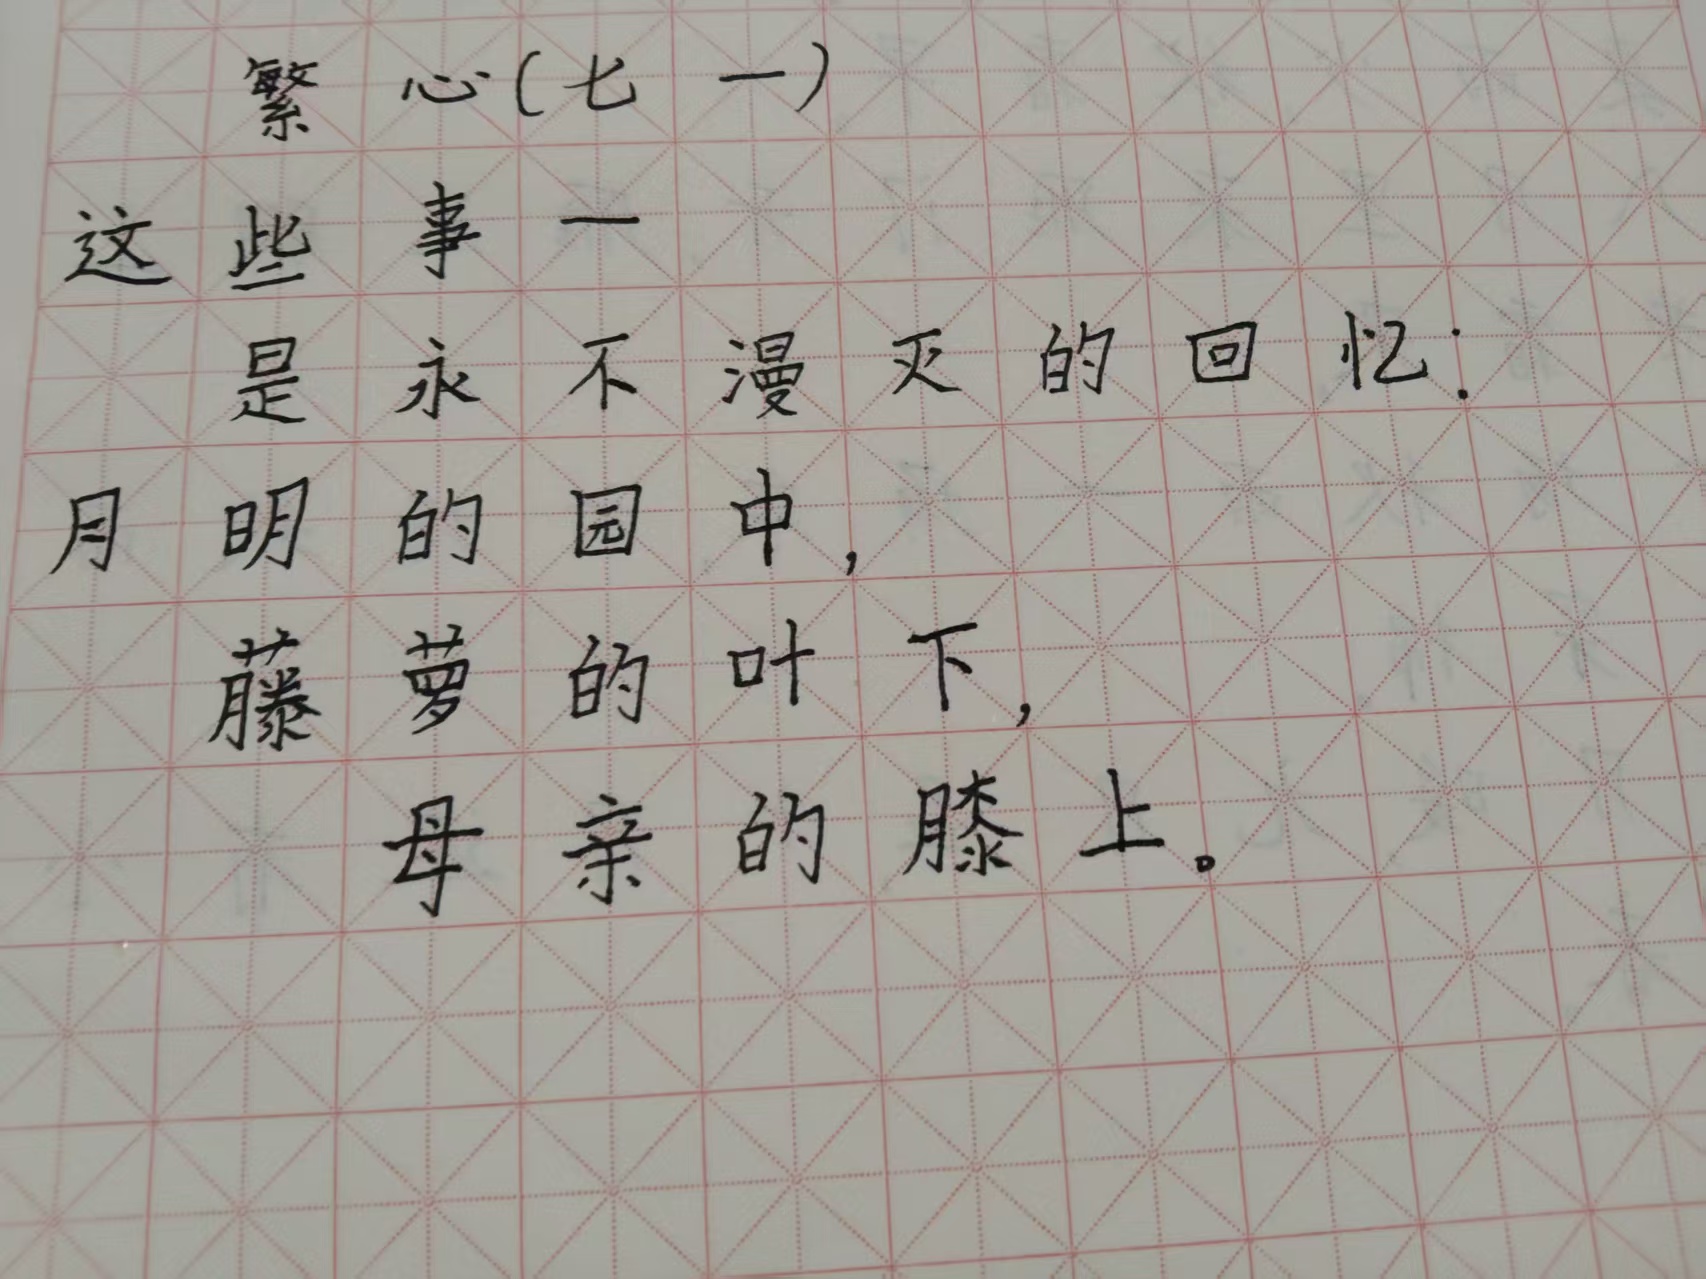 繁心(七一)
这些事一
是永不漫灭的回忆:
月明的园中,
藤萝的叶下,
母亲的膝上。